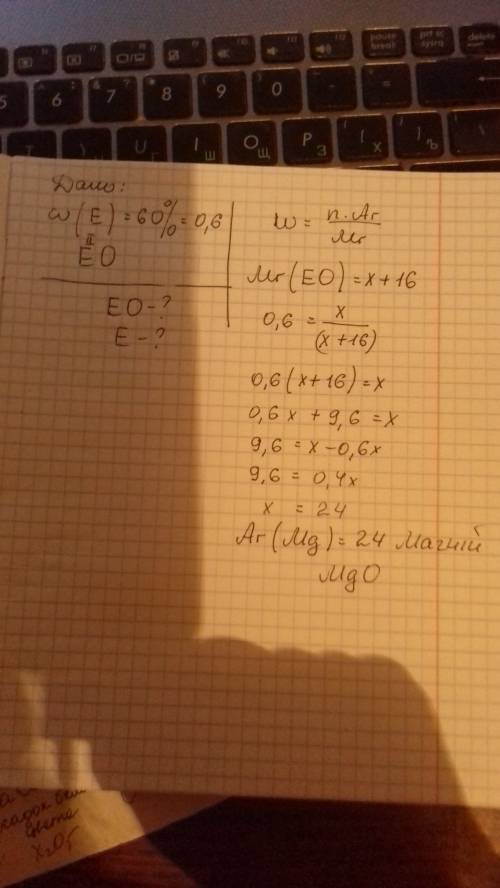 pause break
prt sc sysrq
delete
5 6 7 8 9 0 - =
Г Ш Щ З Х Ъ
Дано:
w(E) = 60% = 0,6
II
EO
EO - ?
E - ?
w = n·Ar / Mr
Mr(EO) = x + 16
0,6 = x / (x + 16)
0,6(x + 16) = x
0,6x + 9,6 = x
9,6 = x - 0,6x
9,6 = 0,4x
x = 24
Ar(Mg) = 24 Магній
MgO
цвета
X₂O₅